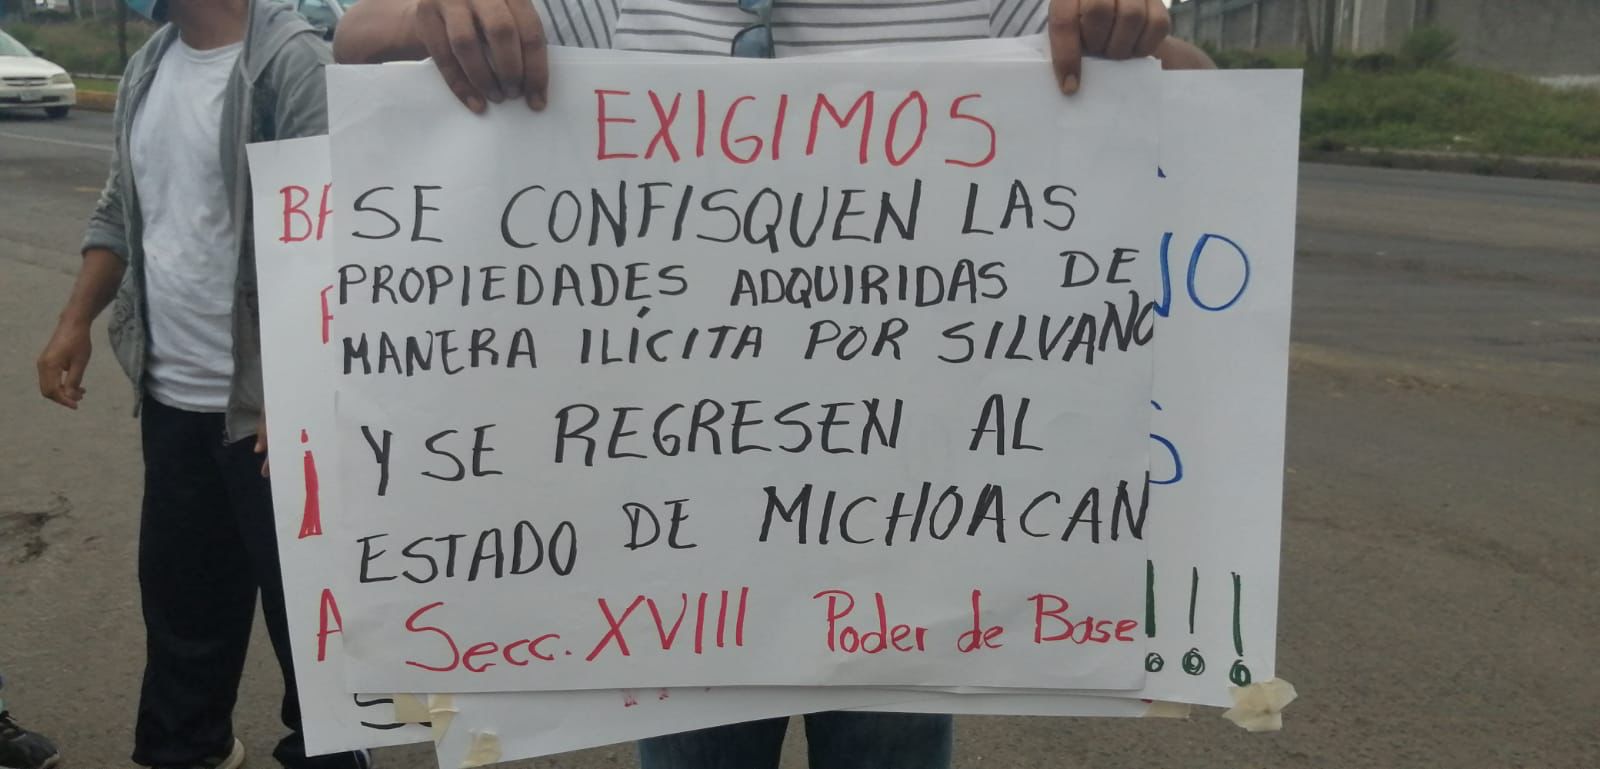 EXIGIMOS
SE CONFISQUEN LAS
PROPIEDADES ADQUIRIDAS DE
MANERA ILÍCITA POR SILVANO
Y SE REGRESEN AL
ESTADO DE MICHOACAN
Secc. XVIII Poder de Base